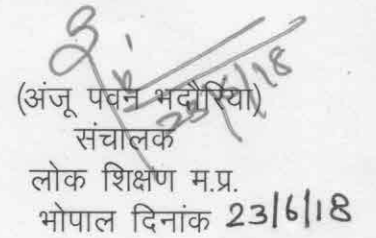 (अंजू पवन भदौरिया)
संचालक
लोक शिक्षण म.प्र.
भोपाल दिनांक 23/6/18